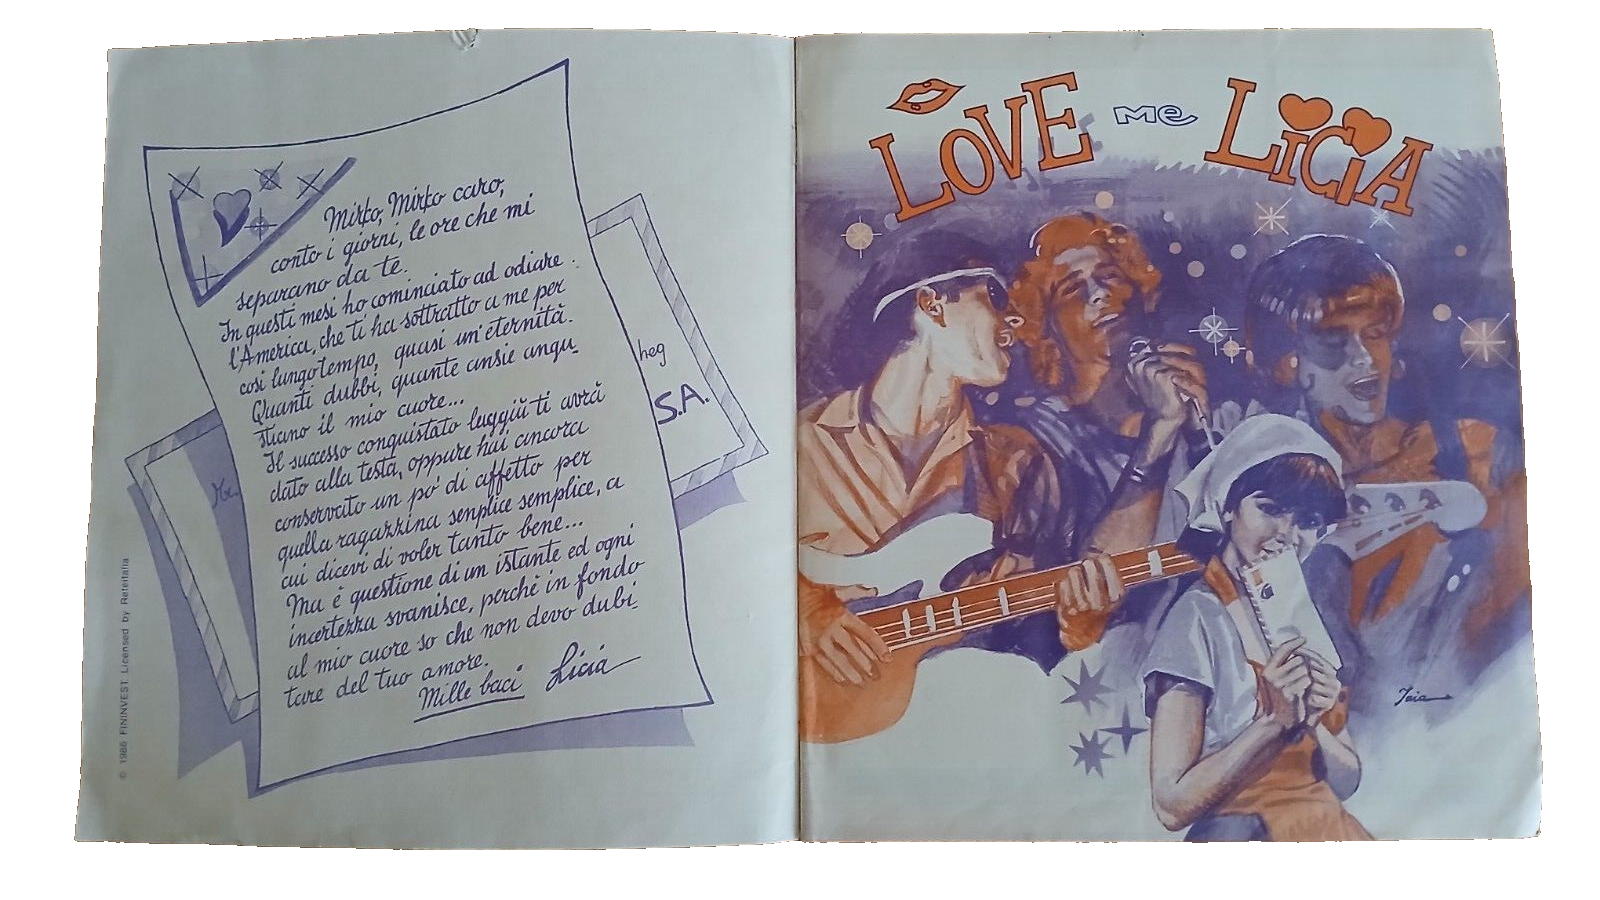 Mirko, Mirko caro,
conto i giorni, le ore che mi
separano da te.
In questi mesi ho cominciato ad odiare
l'America, che ti ha sottratto a me per
così lungo tempo, quasi un'eternità.
Quanti dubbi, quante ansie angu_
stiano il mio cuore...
Il successo conquistato laggiù ti avrà
dato alla testa, oppure hai ancora
conservato un po' di affetto per
quella ragazzina senplice semplice, a
cui dicevi di voler tanto bene...
Ma è questione di un istante ed ogni
incertezza svanisce, perchè in fondo
al mio cuore so che non devo dubi_
tare del tuo amore.
Mille baci Licia
heg
S.A.
© 1986 FININVEST. Licensed by Reteitalia
LOVE me LiCiA